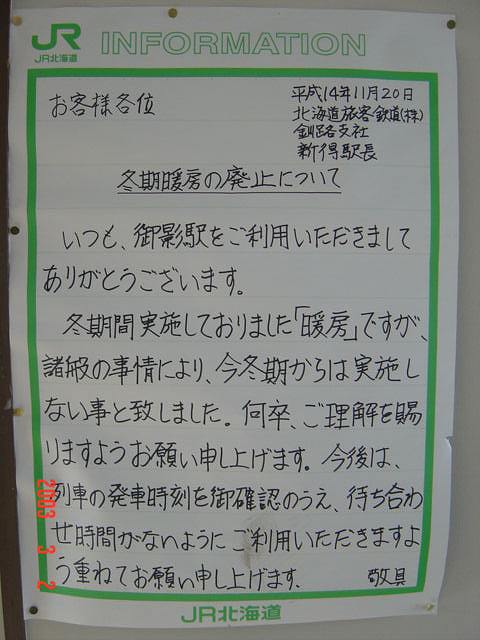 JR INFORMATION
JR北海道
お客様各位
平成14年11月20日
北海道旅客鉄道(株)
釧路支社
新得駅長
冬期暖房の廃止について
いつも、御影駅をご利用いただきまして
ありがとうございます。
冬期間実施しておりました「暖房」ですが、
諸般の事情により、今冬期からは実施し
ない事と致しました。何卒、ご理解を賜
りますようお願い申し上げます。今後は、
列車の発車時刻を御確認のうえ、待ち合わ
せ時間がないようにご利用いただきますよ
う重ねてお願い申し上げます.
敬具
JR北海道
2003 3 2